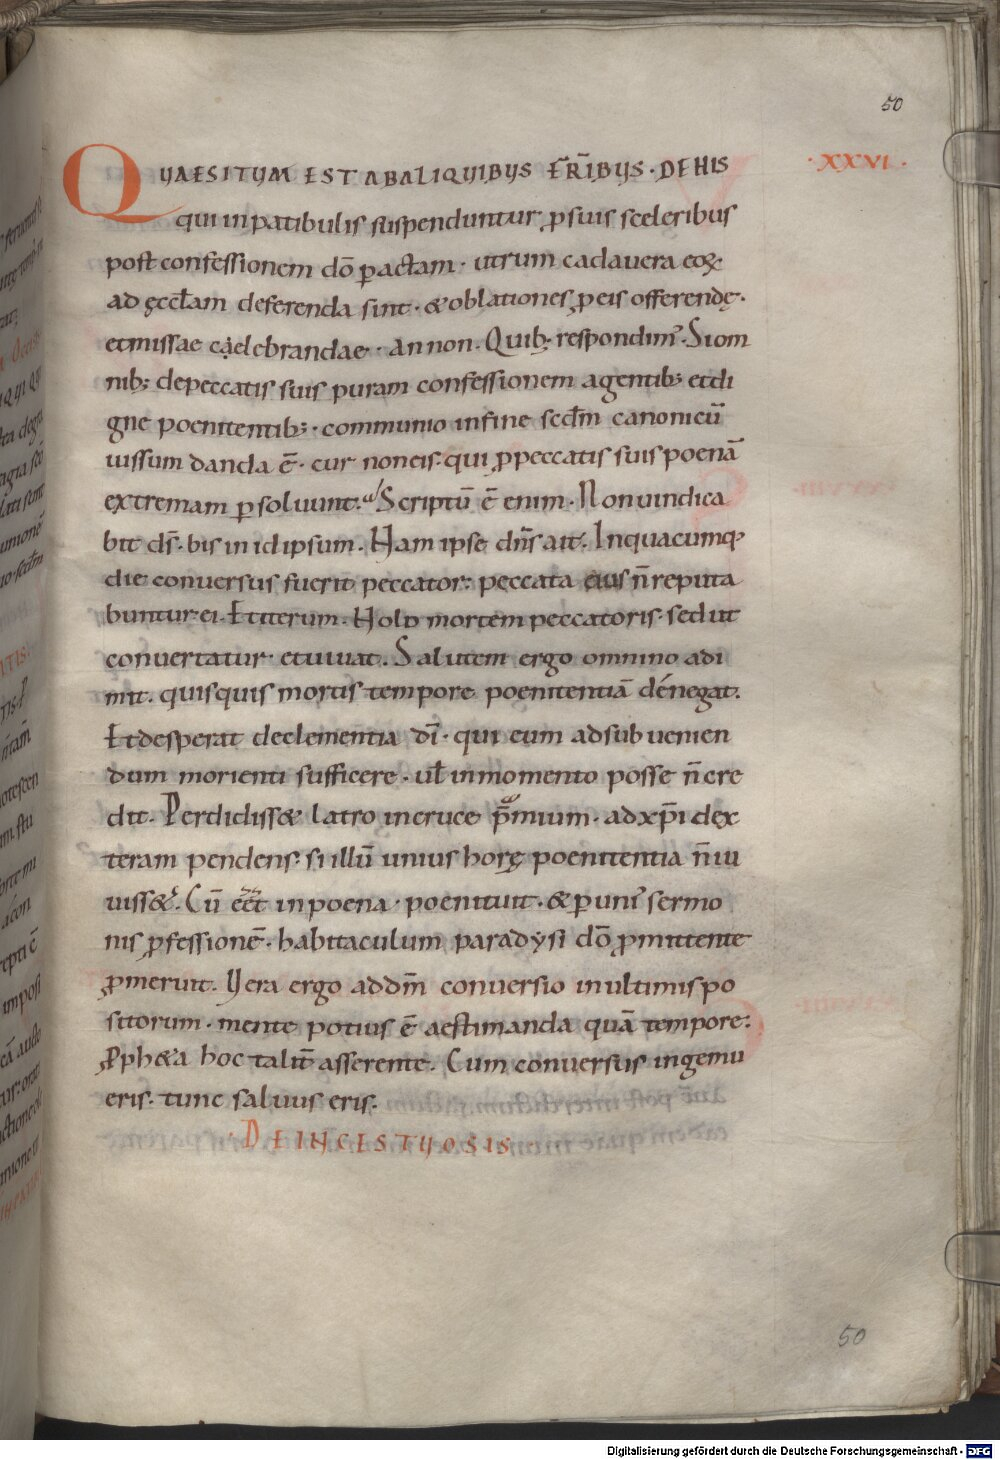 50
QUAESITUM EST ABALIQUIBUS FR̄IBUS · DEHIS ·XXVI·
qui inpatibulis suspenduntur ꝓsuis sceleribus
post confessionem dō ꝑactam · utrum cadavera eoꝝ
ad ęccłam deferenda sint · & oblationes ꝓeis offerendę ·
et missae caelebrandae · an non · Quib; respondim᾿ · Si om
nib; depeccatis suis puram confessionem agentib; et di
gne poenitentib; · communio infine scdm̄ canonicū
iussum danda ē · cur non eis · qui ꝓpeccatis suis poenā
extremam ꝑsoluunt · Scriptū ē enim · Non uindica
bit dš · bis in id ipsum · Nam ipse dn̄s ait · Inquacumq;
die conuersus fuerit peccator : peccata eius n̄ reputa
buntur ei · Et iterum · Nolo mortem peccatoris · sed ut
conuertatur · et uiuat · Salutem ergo omnino adi
mit · quisquis mortis tempore poenitentiā dénegat ·
Et desperat declementia dī · qui eum ad subuenien
dum morienti sufficere · uł inmomento posse n̄ cre
dit · Perdidiss& latro incruce p̄mium · ad xp̄i dex
teram pendens · si illū unius horę poenitentia n̄ iu
uiss& · Cū eēt inpoena · poenituit · & ꝑ uni᾿ sermo
nis ꝓfessionē · habitaculum paradysi dō ꝓmittente
ꝓmeruit · Uera ergo addm̄ conuersio inultimis po
sitorum · mente potius ē aestimanda quā tempore :
ꝓph&a hoc talit̄ asserente · Cum conuersus ingemu
eris · tunc saluus eris ·
· DE INCESTUOSIS
50
Digitalisierung gefördert durch die Deutsche Forschungsgemeinschaft - DFG